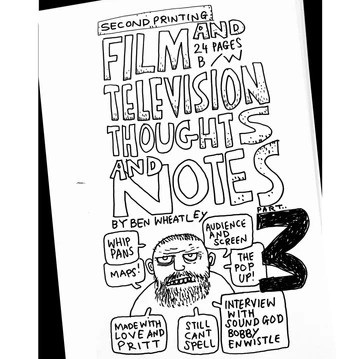 SECOND PRINTING:
FILM AND
24 PAGES
B/W
TELEVISION
THOUGHTS
AND
NOTES
PART..
3
BY BEN WHEATLEY
WHIP
PANS
MAPS!
AUDIENCE
AND
SCREEN
THE
POP
UP!
MADE WITH
LOVE AND
PRITT
STILL
CANT
SPELL
INTERVIEW
WITH
SOUND GOD
BOBBY
ENWISTLE